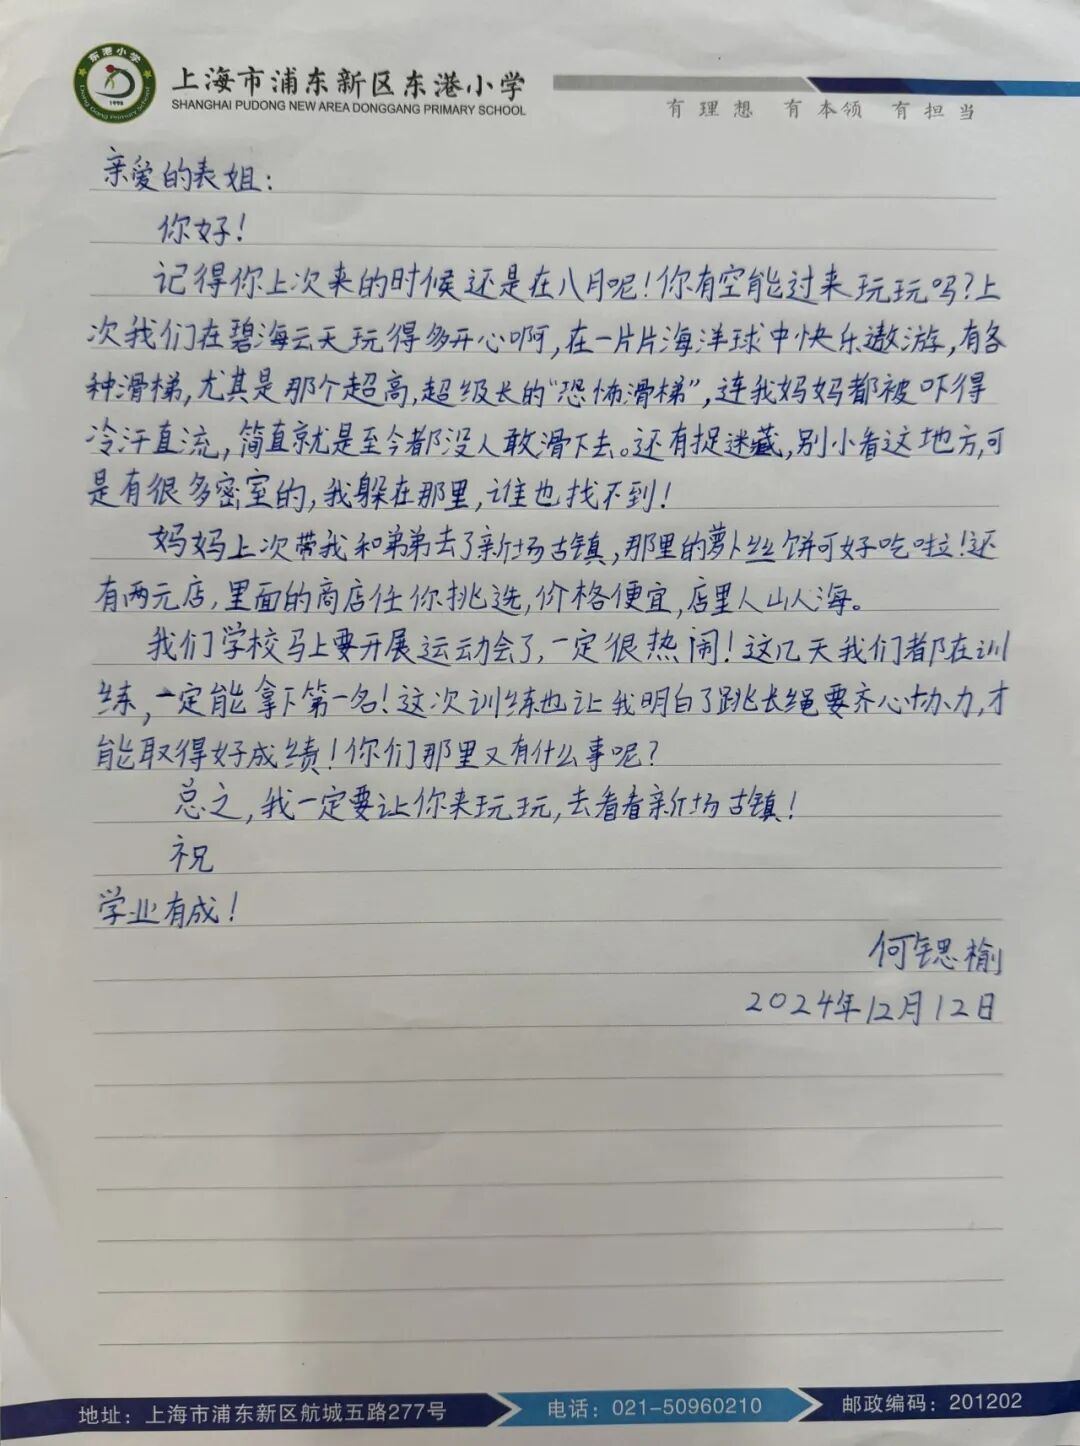 东港小学
1998
Dong Gang Primary School
上海市浦东新区东港小学
SHANGHAI PUDONG NEW AREA DONGGANG PRIMARY SCHOOL
有理想 有本领 有担当
亲爱的表姐:
你好!
记得你上次来的时候还是在八月呢!你有空能过来玩玩吗?上
次我们在碧海云天玩得多开心啊,在一片片海洋球中快乐遨游,有各
种滑梯,尤其是那个超高,超级长的“恐怖滑梯”,连我妈妈都被吓得
冷汗直流,简直就是至今都没人敢滑下去。还有捉迷藏,别小看这地方,可
是有很多密室的,我躲在那里,谁也找不到!
妈妈上次带我和弟弟去了新场古镇,那里的萝卜丝饼可好吃啦!还
有两元店,里面的商店任你挑选,价格便宜,店里人山人海。
我们学校马上要开展运动会了,一定很热闹!这几天我们都在训
练,一定能拿下第一名!这次训练也让我明白了跳长绳要齐心协力,才
能取得好成绩!你们那里又有什么事呢?
总之,我一定要让你来玩玩,去看看新场古镇!
祝
学业有成!
何锶榆
2024年12月12日
地址:上海市浦东新区航城五路277号
电话:021-50960210
邮政编码:201202